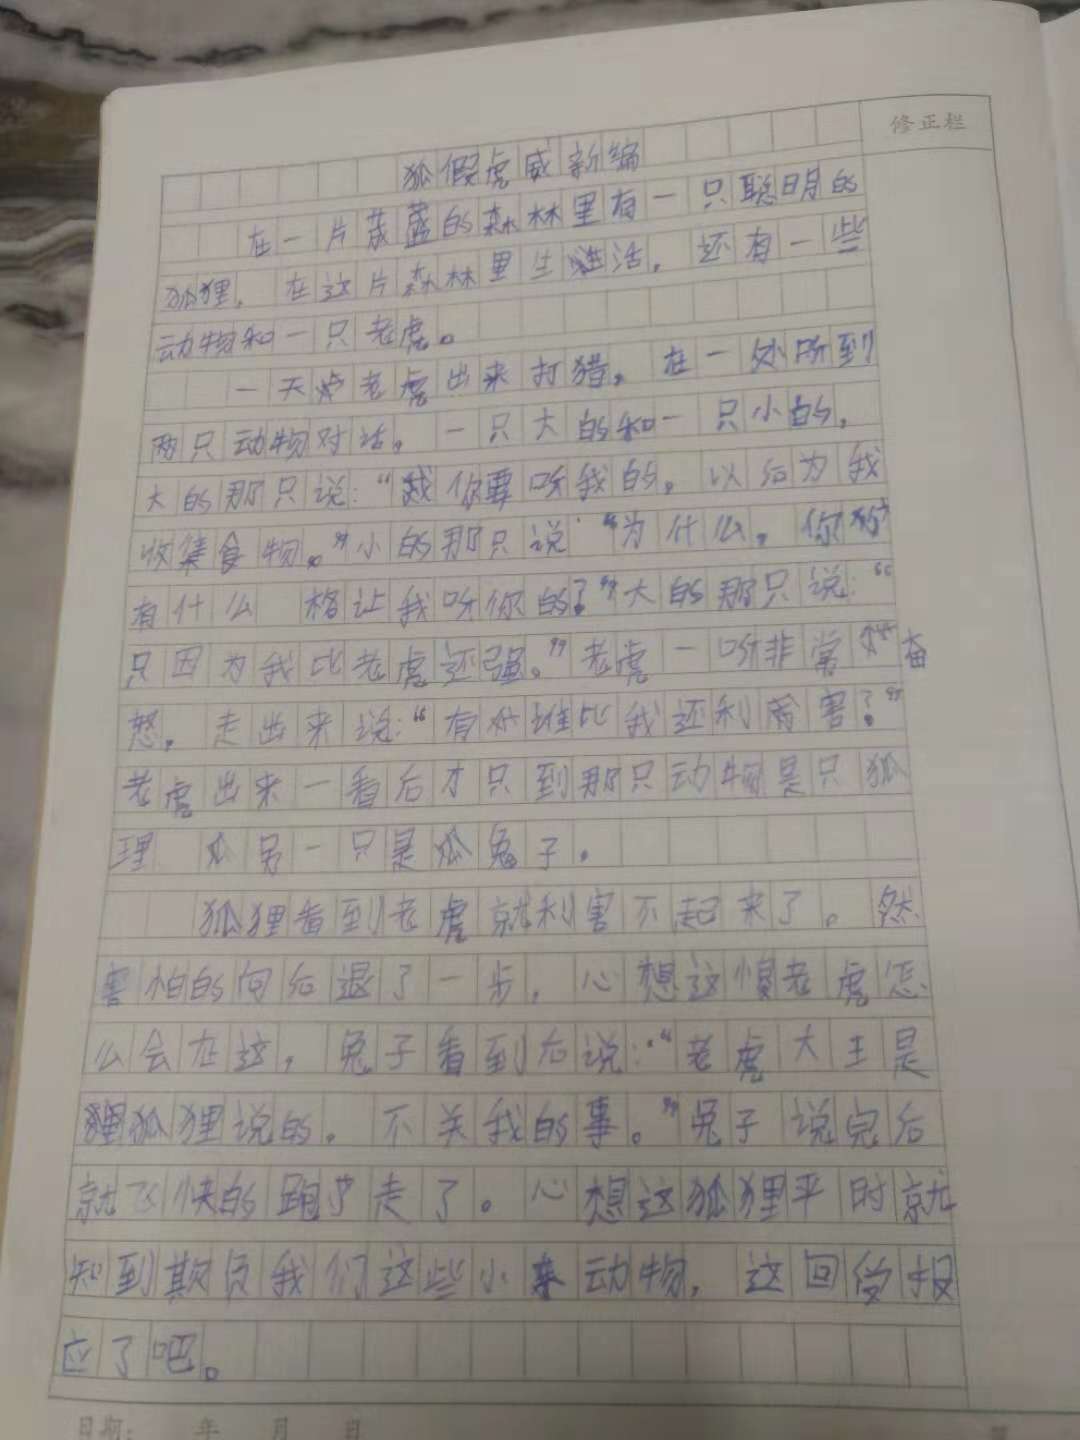 修正栏
狐假虎威新编
在一片茂盛的森林里有一只聪明的
狐狸,在这片森林里生活,还有一些
动物和一只老虎。
一天老虎出来打猎,在一处听到
两只动物对话,一只大的和一只小的,
大的那只说:“你要听我的,以后为我
收集食物。”小的那只说“为什么,你
有什么 格让我听你的?”大的那只说:“
只因为我比老虎还强。”老虎一听非常奋
怒,走出来说:“有谁比我还利害?”
老虎出来一看后才只到那只动物是只狐
理 另一只是兔子.
狐狸看到老虎就利害不起来了。然
害怕的向后退了一步,心想这老虎怎
么会在这,兔子看到后说:“老虎大王是
狐狸说的,不关我的事。”兔子说完后
就飞快的跑走了。心想这狐狸平时就
知到欺负我们这些小动物,这回受报
应了吧。
日期: 年 月 日